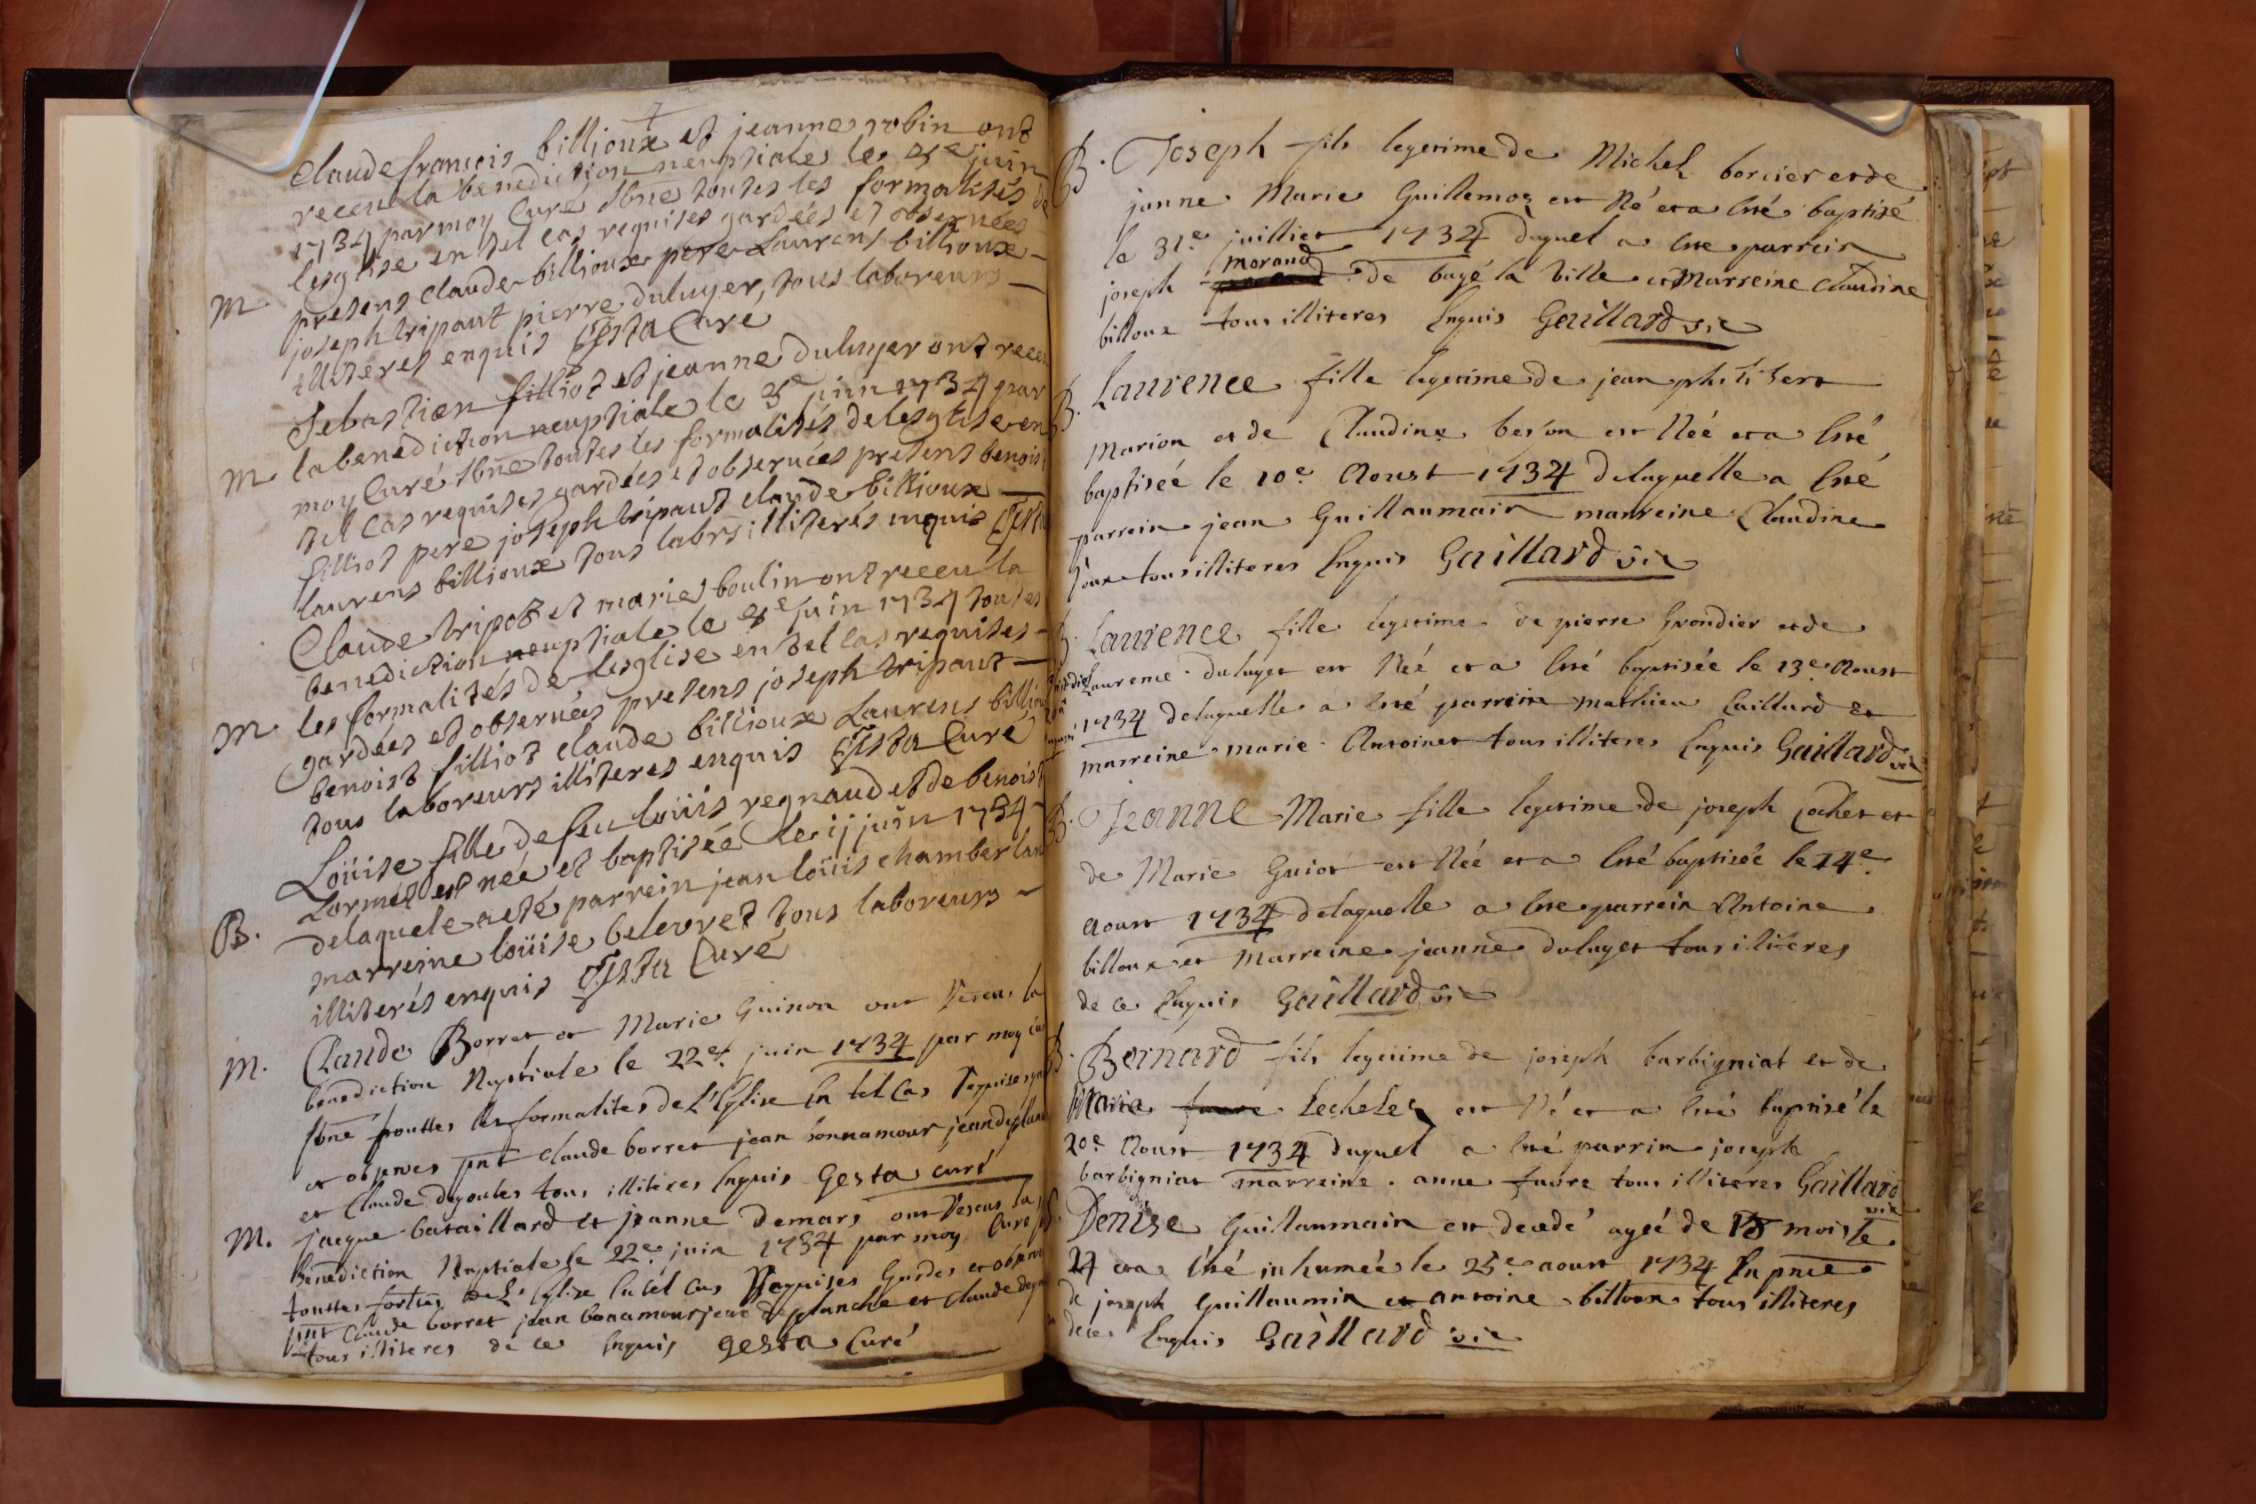 Claude francois billioux et jeanne robin ont
receu la benediction neuptiale le juin
1734 par moy Curé sbne toutes les formalités de
lesglise en tel cas requises gardées et observées
M. presens claude billioux pere Laurens billioux
joseph tripaut pierre duluyer, tous laboreurs
illiteres enquis Gesta Curé
Sebastien filliot et jeanne duluyer ont receu
M la benediction neuptiale le juin 1734 par
moy Curé sbne toutes les formalités de lesglise en
tel cas requises gardées et observées presens benoist
filliot pere joseph tripaut claude billioux
laurens billioux tous labrs illiterés enquis Gesta
Claude tripot et marie boulin ont receu la
benediction neuptiale le juin 1734 toutes
M. les formalités de lesglise en tel cas requises
gardées et observées presens joseph tripaut
benoist filliot claude billioux Laurens billioux
tous laboreurs illiteres enquis Gesta Curé
Loüise fille de feu loüis regnaud et de benoist
Lormet est née et baptisée le juin 1734
B. delaquele a eté parrein jean loüis chamberlan
marreine loüise belevret tous laboreurs
illiterés enquis Gesta Curé
M. Claude Borret et Marie Guinon ont Receus la
benediction Nuptiale le 22e juin 1734 par moy
sbne touttes les formalites de L'Eglise En tel Cas Requises
et observes pnt Claude borret jean bonnamour jean deplanche
et Claude degoutes tous illiteres Enquis Gesta curé
M. jacque bataillard et jeanne Demars ont Receus la
Benediction Nuptiale le 22e juin 1734 par moy Curé
touttes de L'Eglise En tel Cas Requises Gardes et observ
pnt Claude borret jean bonamour jean deplanche et Claude
tous illiteres de ce Enquis gesta Curé
B. Joseph fils legetime de Michel borcier et de
janne Marie Guillemoz est Né et a Eté baptisé
le 31e juillier 1734 Duquel a Ete parrein
joseph morand de bagé la Ville et Marreine Claudine
billoux tous illiteres Enquis Gaillard vic
B. Laurence fille legetime de jean philibert
Marion et de Claudine beson est Née et a Eté
baptisée le 10e Aoust 1734 delaquelle a Eté
parrein jean Guillaumain marreine Claudine
Joux tous illiteres Enquis Gaillard vic
B. Laurence fille legetime de pierre Grondier et de
Laurence duluyer est Née et a Eté baptisée le 13e Aoust
1734 delaquelle a Eté parrein mathieu Caillard Et
marreine marie Antoinet tous illiteres Enquis Gaillard vic
B. Jeanne Marie fille legetime de joseph Cochet et
de Marie Guiot est Née et a Eté baptisée le 14e
Aoust 1734 delaquelle a Ete parrein Antoine
billoux et Marreine jeanne duluyer tous illiteres
de ce Enquis Gaillard vic
B. Bernard fils legetime de joseph barbigniat et de
Marie favre Lechelez est Né et a Eté baptisé le
20e Aoust 1734 Duquel a Eté parrin joseph
barbigniat marreine anne favre tous illiteres Gaillard
vic
Denise Guillaumain est decedé ageé de 18 mois le
24 et a Eté inhumeé le 25e aoust 1734 En pnce
de joseph Guillaumin et antoine billoux tous illiteres
de ce Enquis Gaillard vic